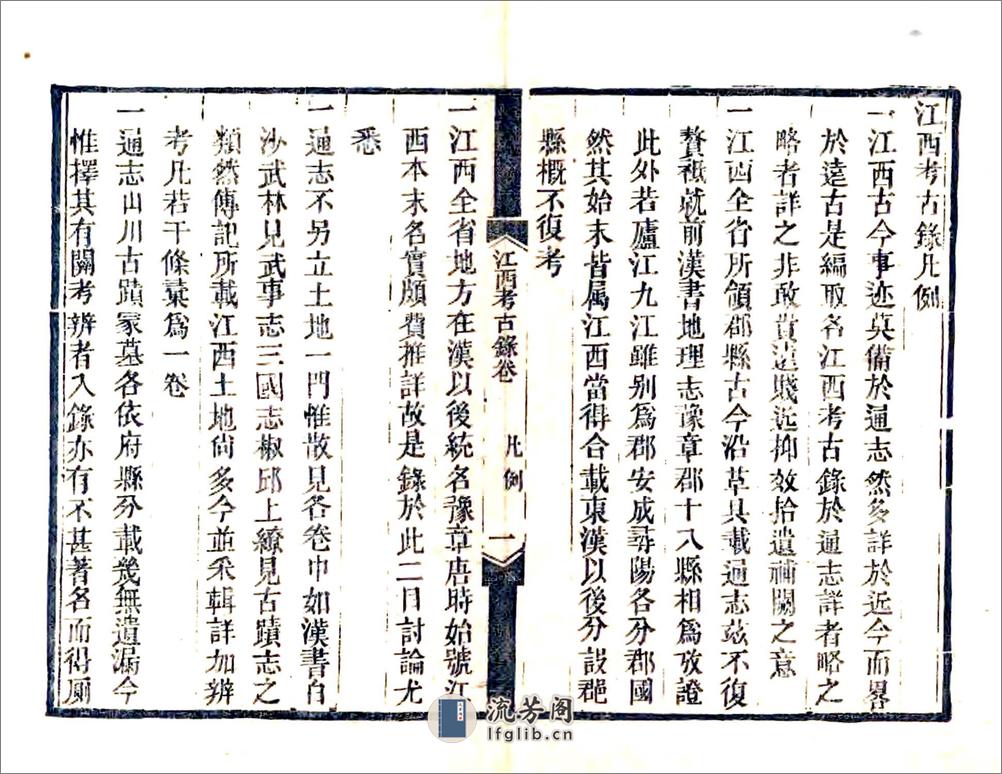 江西考古錄凡例
一江西古今事迹莫備於通志然多詳於近今而畧
於遠古是編取名江西考古錄於通志詳者略之
略者詳之非敢貴遠賤近抑效拾遺補闕之意
一江西全省所領郡縣古今沿革具載通志茲不復
贅祇就前漢書地理志豫章郡十八縣相爲攷證
此外若廬江九江雖别爲郡安成尋陽各分郡國
然其始末皆属江西當得合載東漢以後分設郡
縣概不復考
江西考古錄卷 凡例 一
一江西全省地方在漢以後統名豫章唐時始號江
西本末名實頗費推詳故是錄於此二目討論尤
悉
一通志不另立土地一門惟散見各卷中如漢書白
沙武林見武事志三國志椒邱上繚見古蹟志之
類然傳記所載江西土地尚多今並采輯詳加辨
考凡若干條彚爲一卷
一通志山川古蹟冢墓各依府縣分載幾無遺漏今
惟擇其有關考辨者入錄亦有不甚著名而得厠
流芳阁
lfglib.cn